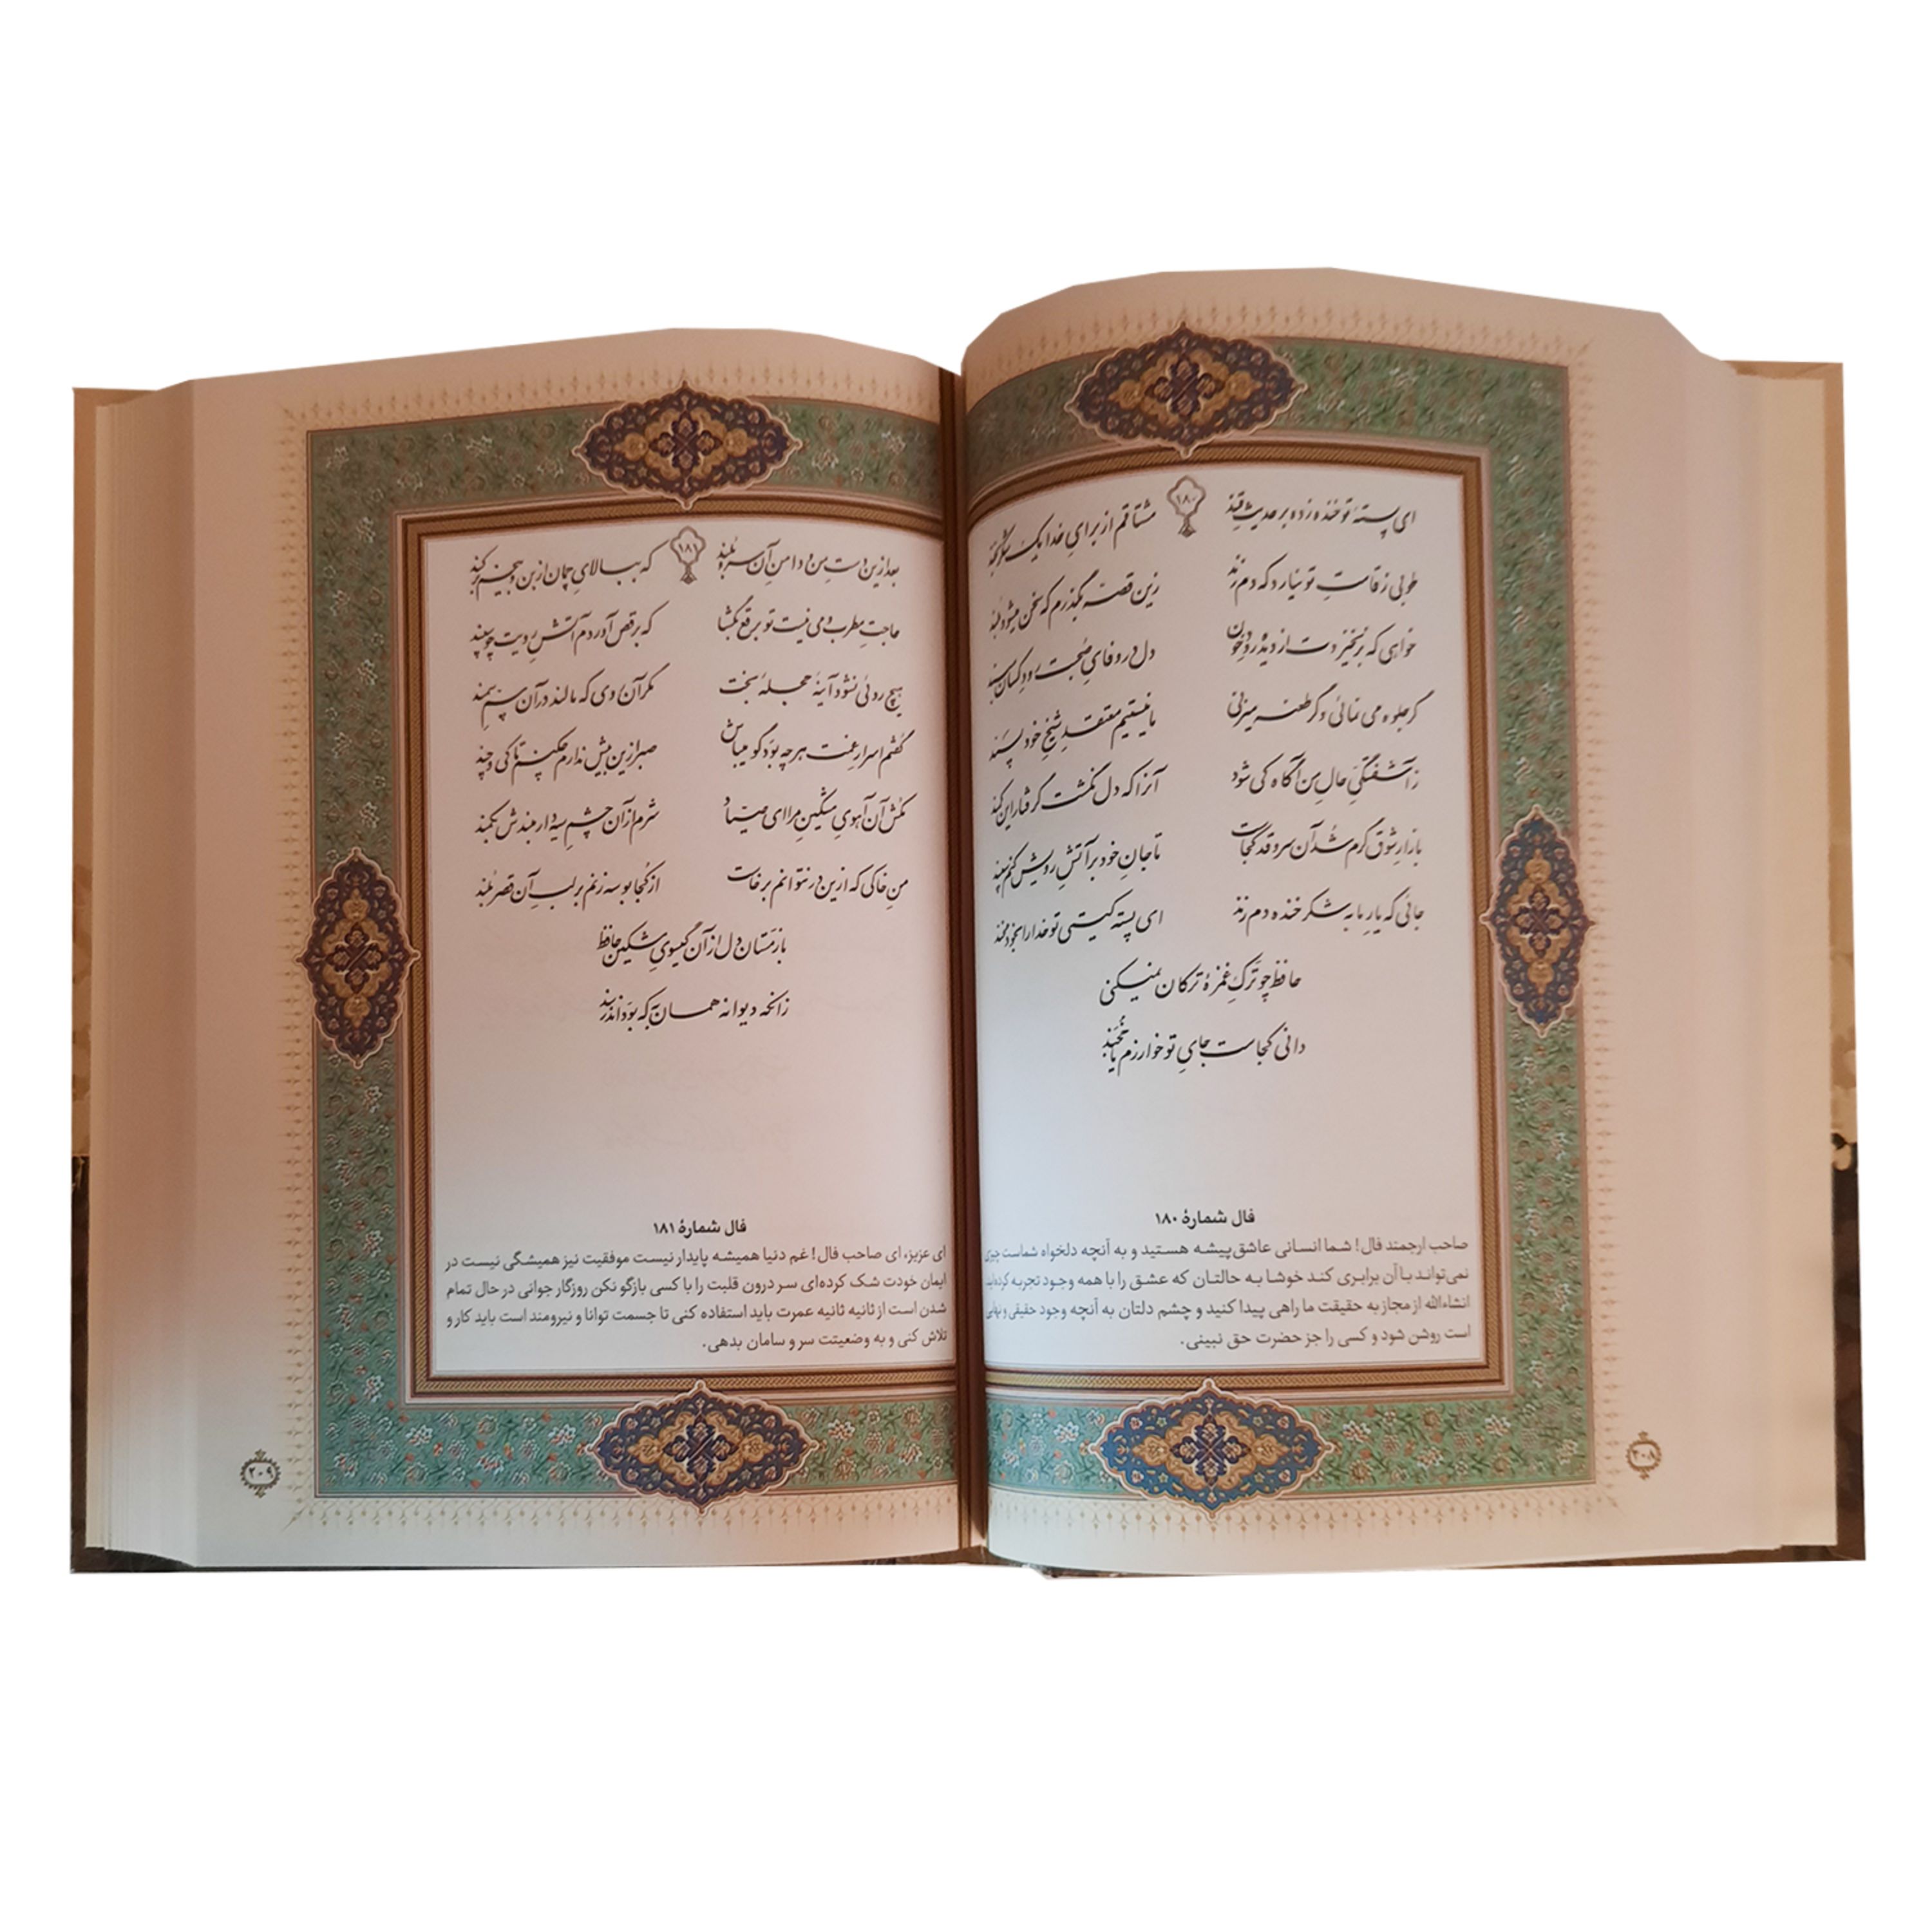 ۱۸۰
ای پسته تو خنده زده بر حدیث قند مشتاقم از برای خدا یک شکر بخند
طوبی ز قامت تو نیارد که دم زند زین قصه بگذرم که سخن میشود بلند
خواهی که برنخیزدت از دیده رود خون دل در وفای صحبت رود کسان مبند
گر جلوه می نمائی و گر طعنه میزنی ما نیستیم معتقد شیخ خود پسند
ز آشفتگی حال من آگاه کی شود آنرا که دل نگشت گرفتار این کمند
بازار شوق گرم شد آن سرو قد کجاست تا جان خود بر آتش رویش کنم سپند
جائی که یار ما به شکر خنده دم زند ای پسته کیستی تو خدا را بخود مخند
حافظ چو ترک غمزهٔ ترکان نمیکنی
دانی کجاست جای تو خوارزم یا خجند
فال شمارهٔ ۱۸۰
صاحب ارجمند فال! شما انسانی عاشق‌پیشه هستید و به آنچه دلخواه شماست چیزی
نمی‌تواند با آن برابری کند خوشا به حالتان که عشق را با همه وجود تجربه کرده‌اید
انشاءالله از مجاز به حقیقت ما راهی پیدا کنید و چشم دلتان به آنچه وجود حقیقی و نهایی
است روشن شود و کسی را جز حضرت حق نبینی.
۲۰۸
۱۸۱
بعد ازین دست من و دامن آن سرو بلند که ببالای چمان از بن و بیخم برکند
حاجت مطرب و می نیست تو برقع بگشا که برقص آوردم آتش رویت چو سپند
هیچ روئی نشود آینهٔ حجلهٔ بخت مگر آن روی که مالند در آن سم سمند
گفتم اسرار غمت هر چه بود گو میباش صبر ازین بیش ندارم چکنم تا کی و چند
مکش آن آهوی مشکین مرا ای صیاد شرم از آن چشم سیه دار و مبندش بکمند
من خاکی که ازین در نتوانم برخاست از کجا بوسه زنم بر لب آن قصر بلند
باز مستان دل از آن گیسوی مشکین حافظ
زانکه دیوانه همان به که بود اندر بند
فال شمارهٔ ۱۸۱
ای عزیز، ای صاحب فال! غم دنیا همیشه پایدار نیست موفقیت نیز همیشگی نیست در
ایمان خودت شک کرده‌ای سر درون قلبت را با کسی بازگو نکن روزگار جوانی در حال تمام
شدن است از ثانیه ثانیه عمرت باید استفاده کنی تا جسمت توانا و نیرومند است باید کار و
تلاش کنی و به وضعیتت سر و سامان بدهی.
۲۰۹